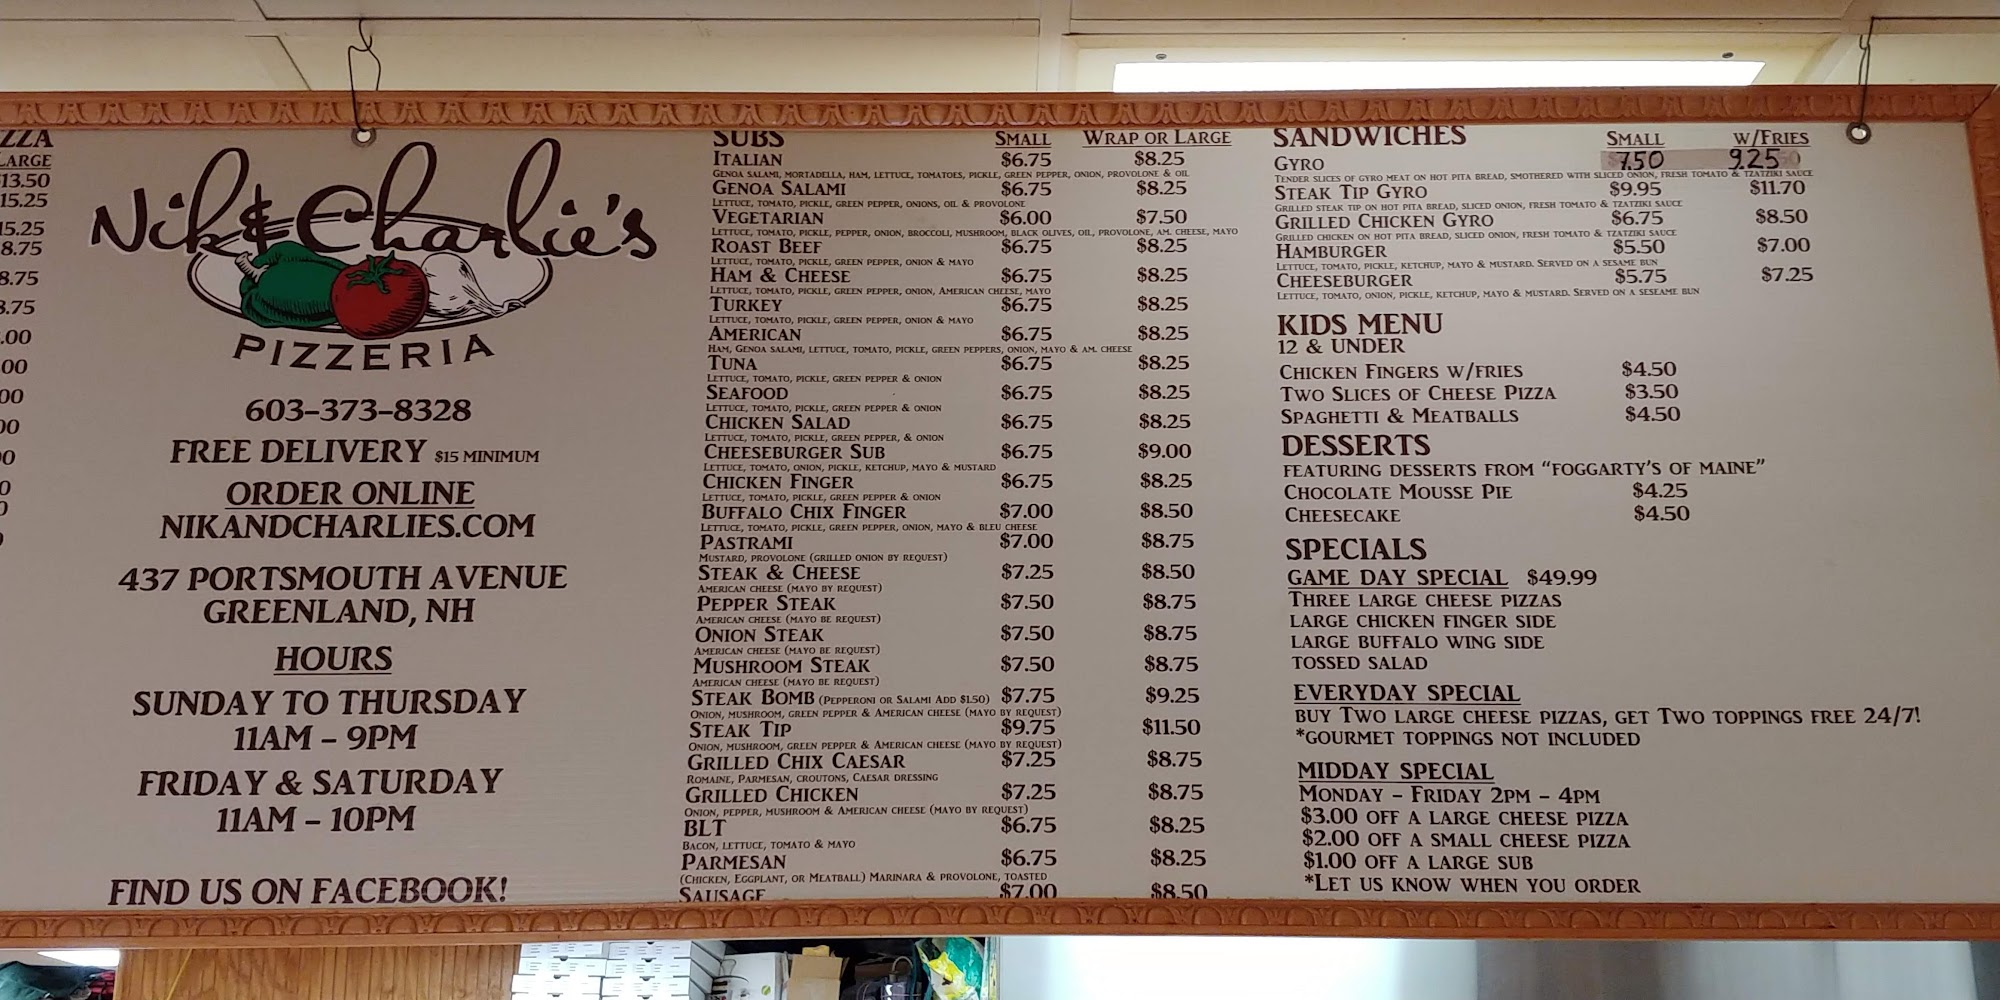 ZZA
LARGE
13.50
15.25
15.25
8.75
8.75
8.75
.00
00
00
00
0
0
0
Nik & Charlie's
PIZZERIA
603-373-8328
FREE DELIVERY $15 MINIMUM
ORDER ONLINE
NIKANDCHARLIES.COM
437 PORTSMOUTH AVENUE
GREENLAND, NH
HOURS
SUNDAY TO THURSDAY
11AM – 9PM
FRIDAY & SATURDAY
11AM – 10PM
FIND US ON FACEBOOK!
SUBS SMALL WRAP OR LARGE
ITALIAN $6.75 $8.25
GENOA SALAMI, MORTADELLA, HAM, LETTUCE, TOMATOES, PICKLE, GREEN PEPPER, ONION, PROVOLONE & OIL
GENOA SALAMI $6.75 $8.25
LETTUCE, TOMATO, PICKLE, GREEN PEPPER, ONIONS, OIL & PROVOLONE
VEGETARIAN $6.00 $7.50
LETTUCE, TOMATO, PICKLE, PEPPER, ONION, BROCCOLI, MUSHROOM, BLACK OLIVES, OIL, PROVOLONE, AM. CHEESE, MAYO
ROAST BEEF $6.75 $8.25
LETTUCE, TOMATO, PICKLE, GREEN PEPPER, ONION & MAYO
HAM & CHEESE $6.75 $8.25
LETTUCE, TOMATO, PICKLE, GREEN PEPPER, ONION, AMERICAN CHEESE, MAYO
TURKEY $6.75 $8.25
LETTUCE, TOMATO, PICKLE, GREEN PEPPER, ONION & MAYO
AMERICAN $6.75 $8.25
HAM, GENOA SALAMI, LETTUCE, TOMATO, PICKLE, GREEN PEPPERS, ONION, MAYO & AM. CHEESE
TUNA $6.75 $8.25
LETTUCE, TOMATO, PICKLE, GREEN PEPPER & ONION
SEAFOOD $6.75 $8.25
LETTUCE, TOMATO, PICKLE, GREEN PEPPER & ONION
CHICKEN SALAD $6.75 $8.25
LETTUCE, TOMATO, PICKLE, GREEN PEPPER, & ONION
CHEESEBURGER SUB $6.75 $9.00
LETTUCE, TOMATO, ONION, PICKLE, KETCHUP, MAYO & MUSTARD
CHICKEN FINGER $6.75 $8.25
LETTUCE, TOMATO, PICKLE, GREEN PEPPER & ONION
BUFFALO CHIX FINGER $7.00 $8.50
LETTUCE, TOMATO, PICKLE, GREEN PEPPER, ONION, MAYO & BLEU CHEESE
PASTRAMI $7.00 $8.75
MUSTARD, PROVOLONE (GRILLED ONION BY REQUEST)
STEAK & CHEESE $7.25 $8.50
AMERICAN CHEESE (MAYO BY REQUEST)
PEPPER STEAK $7.50 $8.75
AMERICAN CHEESE (MAYO BE REQUEST)
ONION STEAK $7.50 $8.75
AMERICAN CHEESE (MAYO BE REQUEST)
MUSHROOM STEAK $7.50 $8.75
AMERICAN CHEESE (MAYO BE REQUEST)
STEAK BOMB (PEPPERONI OR SALAMI ADD $1.50) $7.75 $9.25
ONION, MUSHROOM, GREEN PEPPER & AMERICAN CHEESE (MAYO BY REQUEST)
STEAK TIP $9.75 $11.50
ONION, MUSHROOM, GREEN PEPPER & AMERICAN CHEESE (MAYO BY REQUEST)
GRILLED CHIX CAESAR $7.25 $8.75
ROMAINE, PARMESAN, CROUTONS, CAESAR DRESSING
GRILLED CHICKEN $7.25 $8.75
ONION, PEPPER, MUSHROOM & AMERICAN CHEESE (MAYO BY REQUEST)
BLT $6.75 $8.25
BACON, LETTUCE, TOMATO & MAYO
PARMESAN $6.75 $8.25
(CHICKEN, EGGPLANT, OR MEATBALL) MARINARA & PROVOLONE, TOASTED
SAUSAGE $7.00 $8.50
SANDWICHES SMALL W/FRIES
GYRO 7.50 9.25
TENDER SLICES OF GYRO MEAT ON HOT PITA BREAD, SMOTHERED WITH SLICED ONION, FRESH TOMATO & TZATZIKI SAUCE
STEAK TIP GYRO $9.95 $11.70
GRILLED STEAK TIP ON HOT PITA BREAD, SLICED ONION, FRESH TOMATO & TZATZIKI SAUCE
GRILLED CHICKEN GYRO $6.75 $8.50
GRILLED CHICKEN ON HOT PITA BREAD, SLICED ONION, FRESH TOMATO & TZATZIKI SAUCE
HAMBURGER $5.50 $7.00
LETTUCE, TOMATO, PICKLE, KETCHUP, MAYO & MUSTARD. SERVED ON A SESAME BUN
CHEESEBURGER $5.75 $7.25
LETTUCE, TOMATO, ONION, PICKLE, KETCHUP, MAYO & MUSTARD. SERVED ON A SESEAME BUN
KIDS MENU
12 & UNDER
CHICKEN FINGERS W/FRIES $4.50
TWO SLICES OF CHEESE PIZZA $3.50
SPAGHETTI & MEATBALLS $4.50
DESSERTS
FEATURING DESSERTS FROM "FOGGARTY'S OF MAINE"
CHOCOLATE MOUSSE PIE $4.25
CHEESECAKE $4.50
SPECIALS
GAME DAY SPECIAL $49.99
THREE LARGE CHEESE PIZZAS
LARGE CHICKEN FINGER SIDE
LARGE BUFFALO WING SIDE
TOSSED SALAD
EVERYDAY SPECIAL
BUY TWO LARGE CHEESE PIZZAS, GET TWO TOPPINGS FREE 24/7!
*GOURMET TOPPINGS NOT INCLUDED
MIDDAY SPECIAL
MONDAY – FRIDAY 2PM – 4PM
$3.00 OFF A LARGE CHEESE PIZZA
$2.00 OFF A SMALL CHEESE PIZZA
$1.00 OFF A LARGE SUB
*LET US KNOW WHEN YOU ORDER